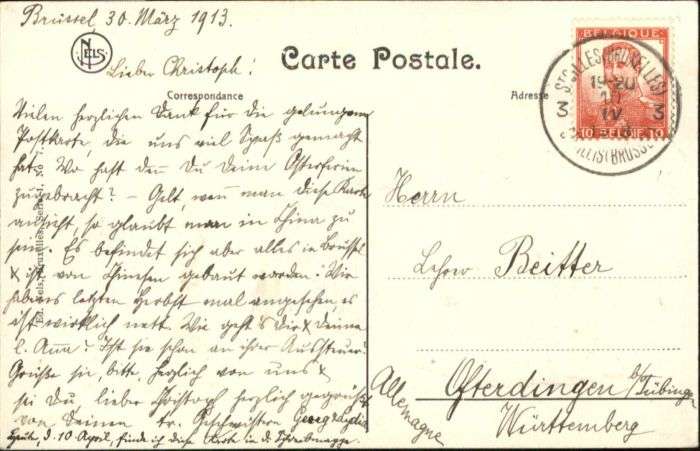 Brüssel, 30. März 1913.
NELS
Lieber Christoph!
Carte Postale.
Correspondance
Adresse
BELGIQUE
10 BELGIE 10
ST GILLES (BRUXELLES)
19-20
IV
3 3
Vielen herzlichen Dank für die gelungene
Postkarte, die uns viel Spaß gemacht
hat. Wo hast denn Du Deine Osterferien
zugebracht? – Gelt, wenn man diese Karte
ansieht, so glaubt man in China zu
sein. Es befindet sich aber alles in Brüssel
& ist von Chinesen gebaut worden. Wir
haben's letzten Herbst mal angesehen, es
ist wirklich nett. Wie geht's Dir & Deiner
l. Anna? Ist sie schon an ihrer Aussteuer?
Grüße sie, bitte, herzlich von uns &
sei Du, lieber Christoph herzlich gegrüßt
von Deinen tr. Geschwistern Georg & Lydia
Heute, d. 10 April, finde ich diese Karte in d. Schreibmappe.
Herrn
Beitter
Ofterdingen b/ Tübingen
Württemberg
Allemagne